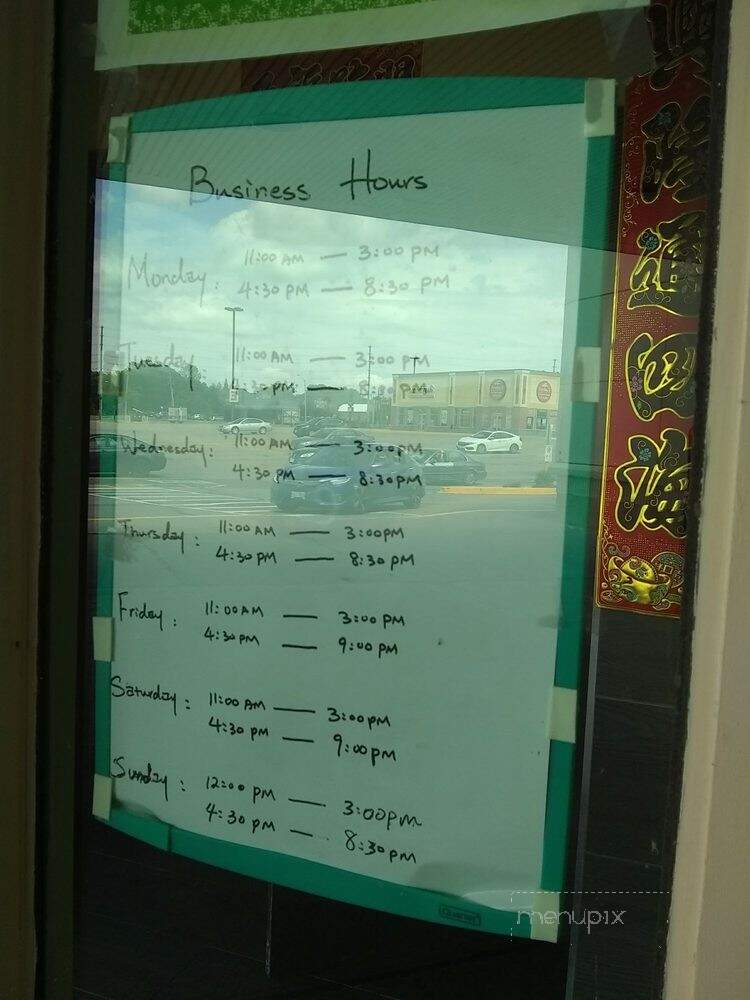 Business Hours
Monday: 11:00 AM — 3:00 PM
4:30 PM — 8:30 PM
Tuesday 11:00 AM — 3:00 PM
4:30 PM — 8:30 PM
Wednesday: 11:00 AM — 3:00 PM
4:30 PM — 8:30 PM
Thursday: 11:00 AM — 3:00 PM
4:30 PM — 8:30 PM
Friday: 11:00 AM — 3:00 PM
4:30 PM — 9:00 PM
Saturday: 11:00 AM — 3:00 PM
4:30 PM — 9:00 PM
Sunday: 12:00 PM — 3:00 pm
4:30 PM — 8:30 PM
興隆通四海
menupix